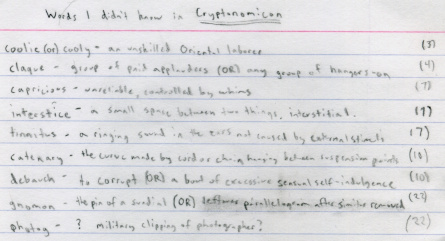 Words I didn't know in Cryptonomicon
coolie (or) cooly - an unskilled Oriental laborer (3)
claque - group of paid applauders (OR) any group of hangers-on (4)
capricious - unreliable, controlled by whims (7)
interstice - a small space between two things, interstitial. (7)
tinnitus - a ringing sound in the ears not caused by external stimuli (7)
catenary - the curve made by cord or chain hanging between suspension points (10)
debauch - to corrupt (OR) a bout of excessive sensual self-indulgence (10)
gnomon - the pin of a sundial (OR) leftover parallelogram after similar removed (22)
photog - ? military clipping of photographer? (22)